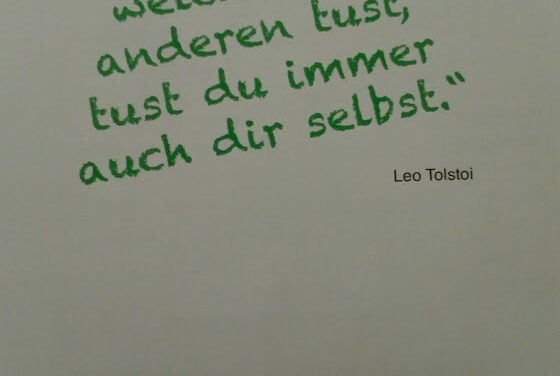 anderen tust,
tust du immer
auch dir selbst.“
Leo Tolstoi